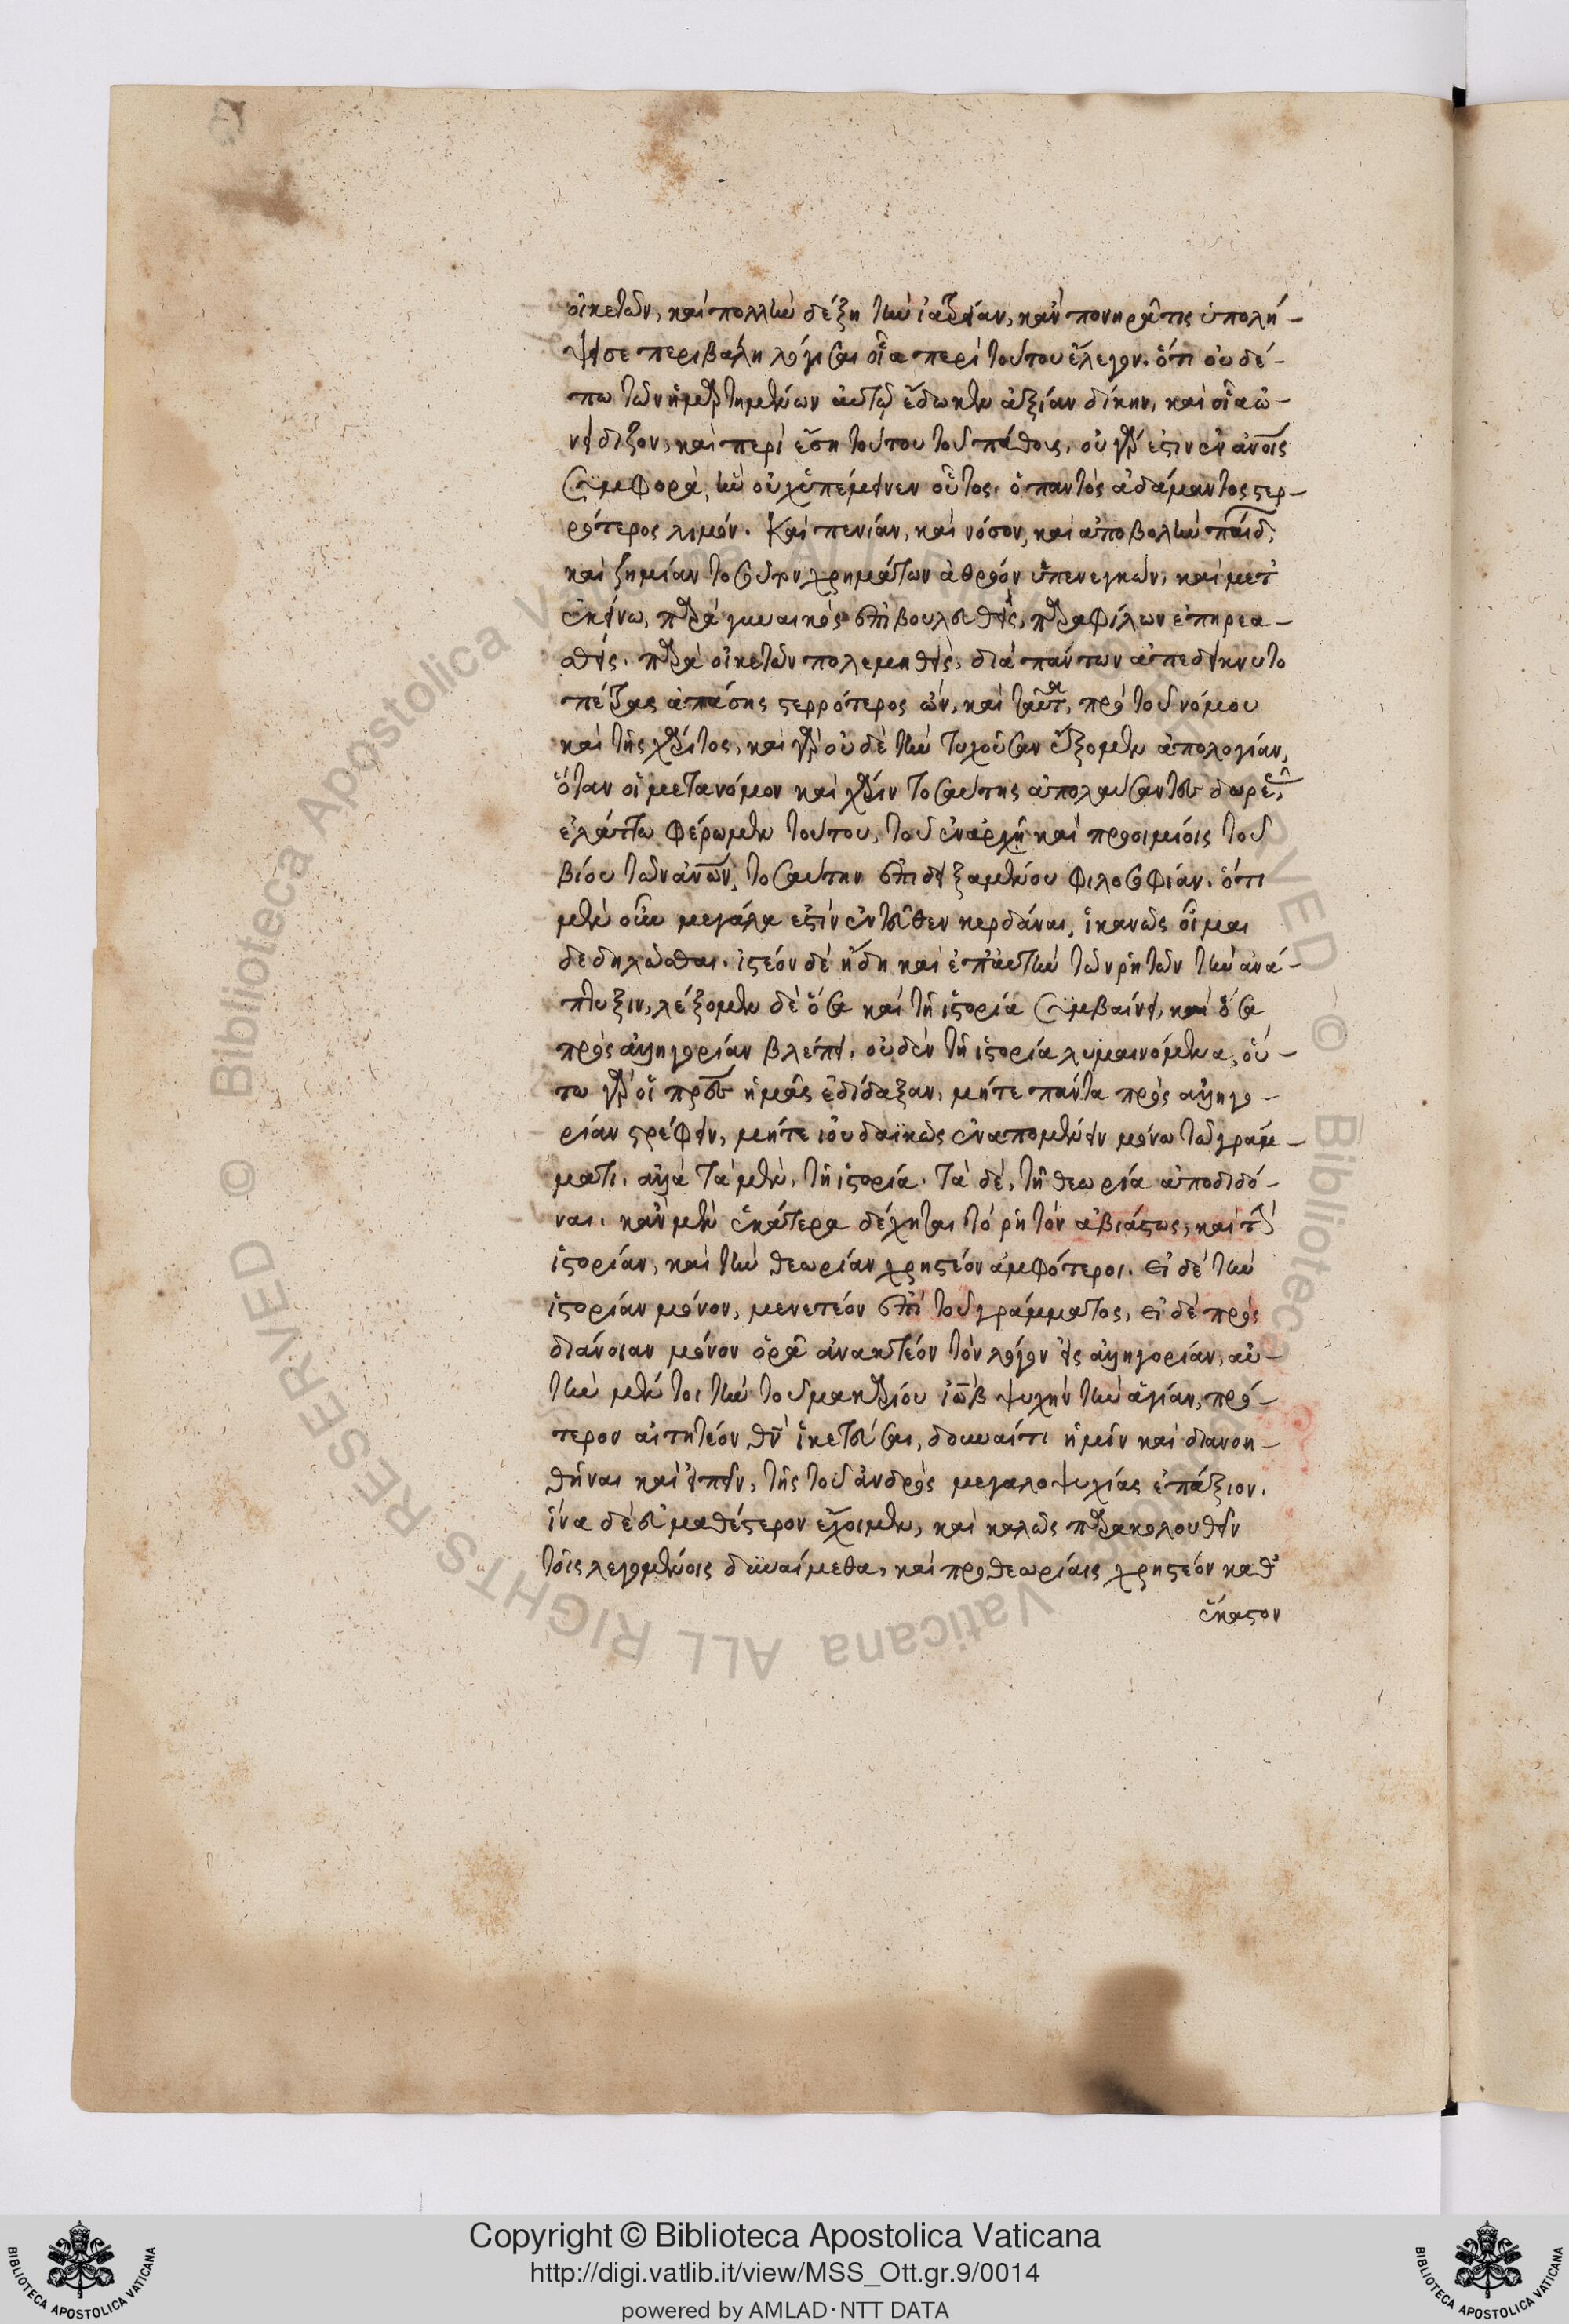 οἰκετῶν, καὶ πολλὴν δέξη τὴν ἰατρείαν, κἂν πονηρᾶ τις ὑπολή-
ψει σε περιβάλη λόγισαι οἷα περὶ τούτου ἔλεγον. ὅτι οὐδέ-
πω τῶν ἡμαρτημένων αὐτῷ ἔδωκεν ἀξίαν δίκην, καὶ οἷα ὠ-
νείδιζον, καὶ περὶ ἔση τούτου τοῦ πάθους, οὐ γάρ ἐστιν ἐν ἀνοις
συμφορὰ, ἣν οὐχ ὑπέμεινεν οὗτος. ὁ παντὸς ἀδάμαντος στερ-
ρότερος λιμόν. Καὶ πενίαν, καὶ νόσον, καὶ ἀποβολὴν παίδ,
καὶ ζημίαν τοσούτον χρημάτων ἀθρόον ὑπενεγκὼν, καὶ μετ
ἐκείνω, παρὰ γυναικὸς ἐπιβουλευθεὶς, παρὰ φίλων ἐπηρεα-
σθεὶς. παρὰ οἰκετῶν πολεμηθεὶς, διὰ πάντων ἀπεδείκνυτο
πέτρας ἁπάσης στερρότερος ὢν, καὶ ταῦτα, πρὸ τοῦ νόμου
καὶ τῆς χάριτος, καὶ γὰρ οὐδὲ τὴν τυχοῦσαν ἕξομεν ἀπολογίαν,
ὅταν οἱ μετα νόμον καὶ χάριν τοσαύτης ἀπολαύσαντες δωρεᾶς,
ἐλάττω φέρωμεν τούτου, τοῦ ἐν ἀρχῆ καὶ προοιμίοις τοῦ
βίου τῶν ἀνων, τοσαύτην ἐπιδειξαμένου φιλοσοφίαν. ὅτι
μὲν οὖν μεγάλα ἐστὶν ἐντεῦθεν κερδάναι, ἱκανῶς οἶμαι
δεδηλῶσθαι. ἰστέον δὲ ἤδη καὶ ἐπ' αὐτὴν τῶν ῥητῶν τὴν ἀνά-
πτυξιν, λέξομεν δὲ ὅσα καὶ τῆ ἱστορία συμβαίνει, καὶ ὅσα
πρὸς ἀλληγορίαν βλέπει. οὐδὲν τῆ ἱστορία λυμαινόμενα, οὕ-
τω γὰρ οἱ πρες ἡμᾶς ἐδίδαξαν, μήτε πάντα πρὸς ἀλληγο-
ρίαν στρέφειν, μήτε ἰουδαϊκῶς ἐναπομένειν μόνω τῶ γράμ-
ματι. ἀλλὰ τὰ μὲν, τῆ ἱστορία. τὰ δὲ, τῆ θεωρία ἀποδιδό-
ναι. κἂν μὲν ἑκάτερα δέχηται τὸ ῥητὸν ἀβιάστως, καὶ τὴν
ἱστορίαν, καὶ τὴν θεωρίαν χρηστέον ἀμφότεροι. εἰ δὲ τὴν
ἱστορίαν μόνον, μενετέον ἐπὶ τοῦ γράμματος, εἰ δὲ πρὸς
διάνοιαν μόνον ὁρᾶ ἀνακτέον τὸν λόγον εἰς ἀλληγορίαν, αὐ-
τὴν μέντοι τὴν τοῦ μακαρίου ἰὼβ ψυχὴν τὴν ἁγίαν, πρό-
τερον αἰτητέον θν ἱκετεῦσαι, δοῦναί τι ἡμῖν καὶ διανοη-
θῆναι καὶ εἰπεῖν, τῆς τοῦ ἀνδρὸς μεγαλοψυχίας ἐπάξιον.
ἵνα δὲ εὐμαθέστερον ἔχοιμεν, καὶ καλῶς παρακολουθεῖν
τοῖς λεγομένοις δυναίμεθα, καὶ προθεωρίαις χρηστέον καθ'
ἕκαστον
Copyright © Biblioteca Apostolica Vaticana
http://digi.vatlib.it/view/MSS_Ott.gr.9/0014
powered by AMLAD·NTT DATA